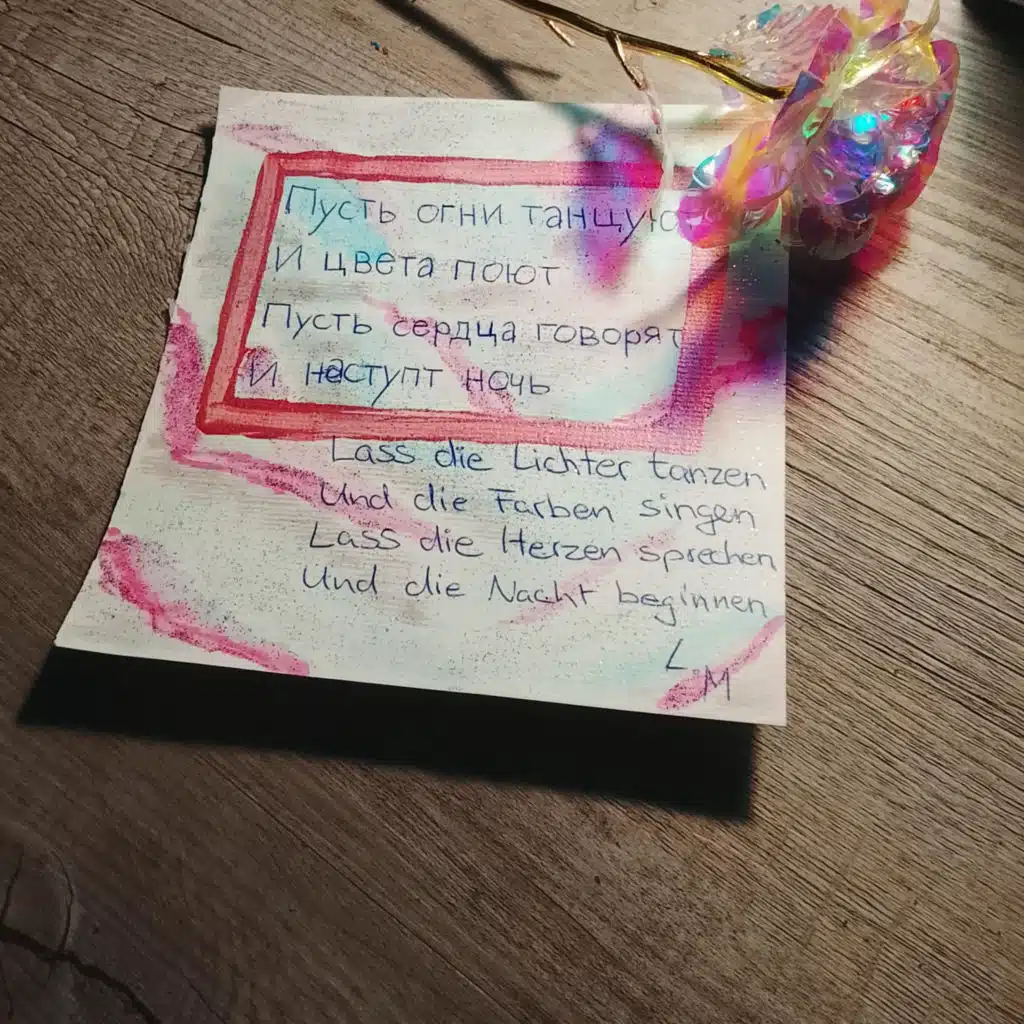 Пусть огни танцую
И цвета поют
Пусть сердца говорят
И наступт ночь
Lass die Lichter tanzen
Und die Farben singen
Lass die Herzen sprechen
Und die Nacht beginnen
L.M